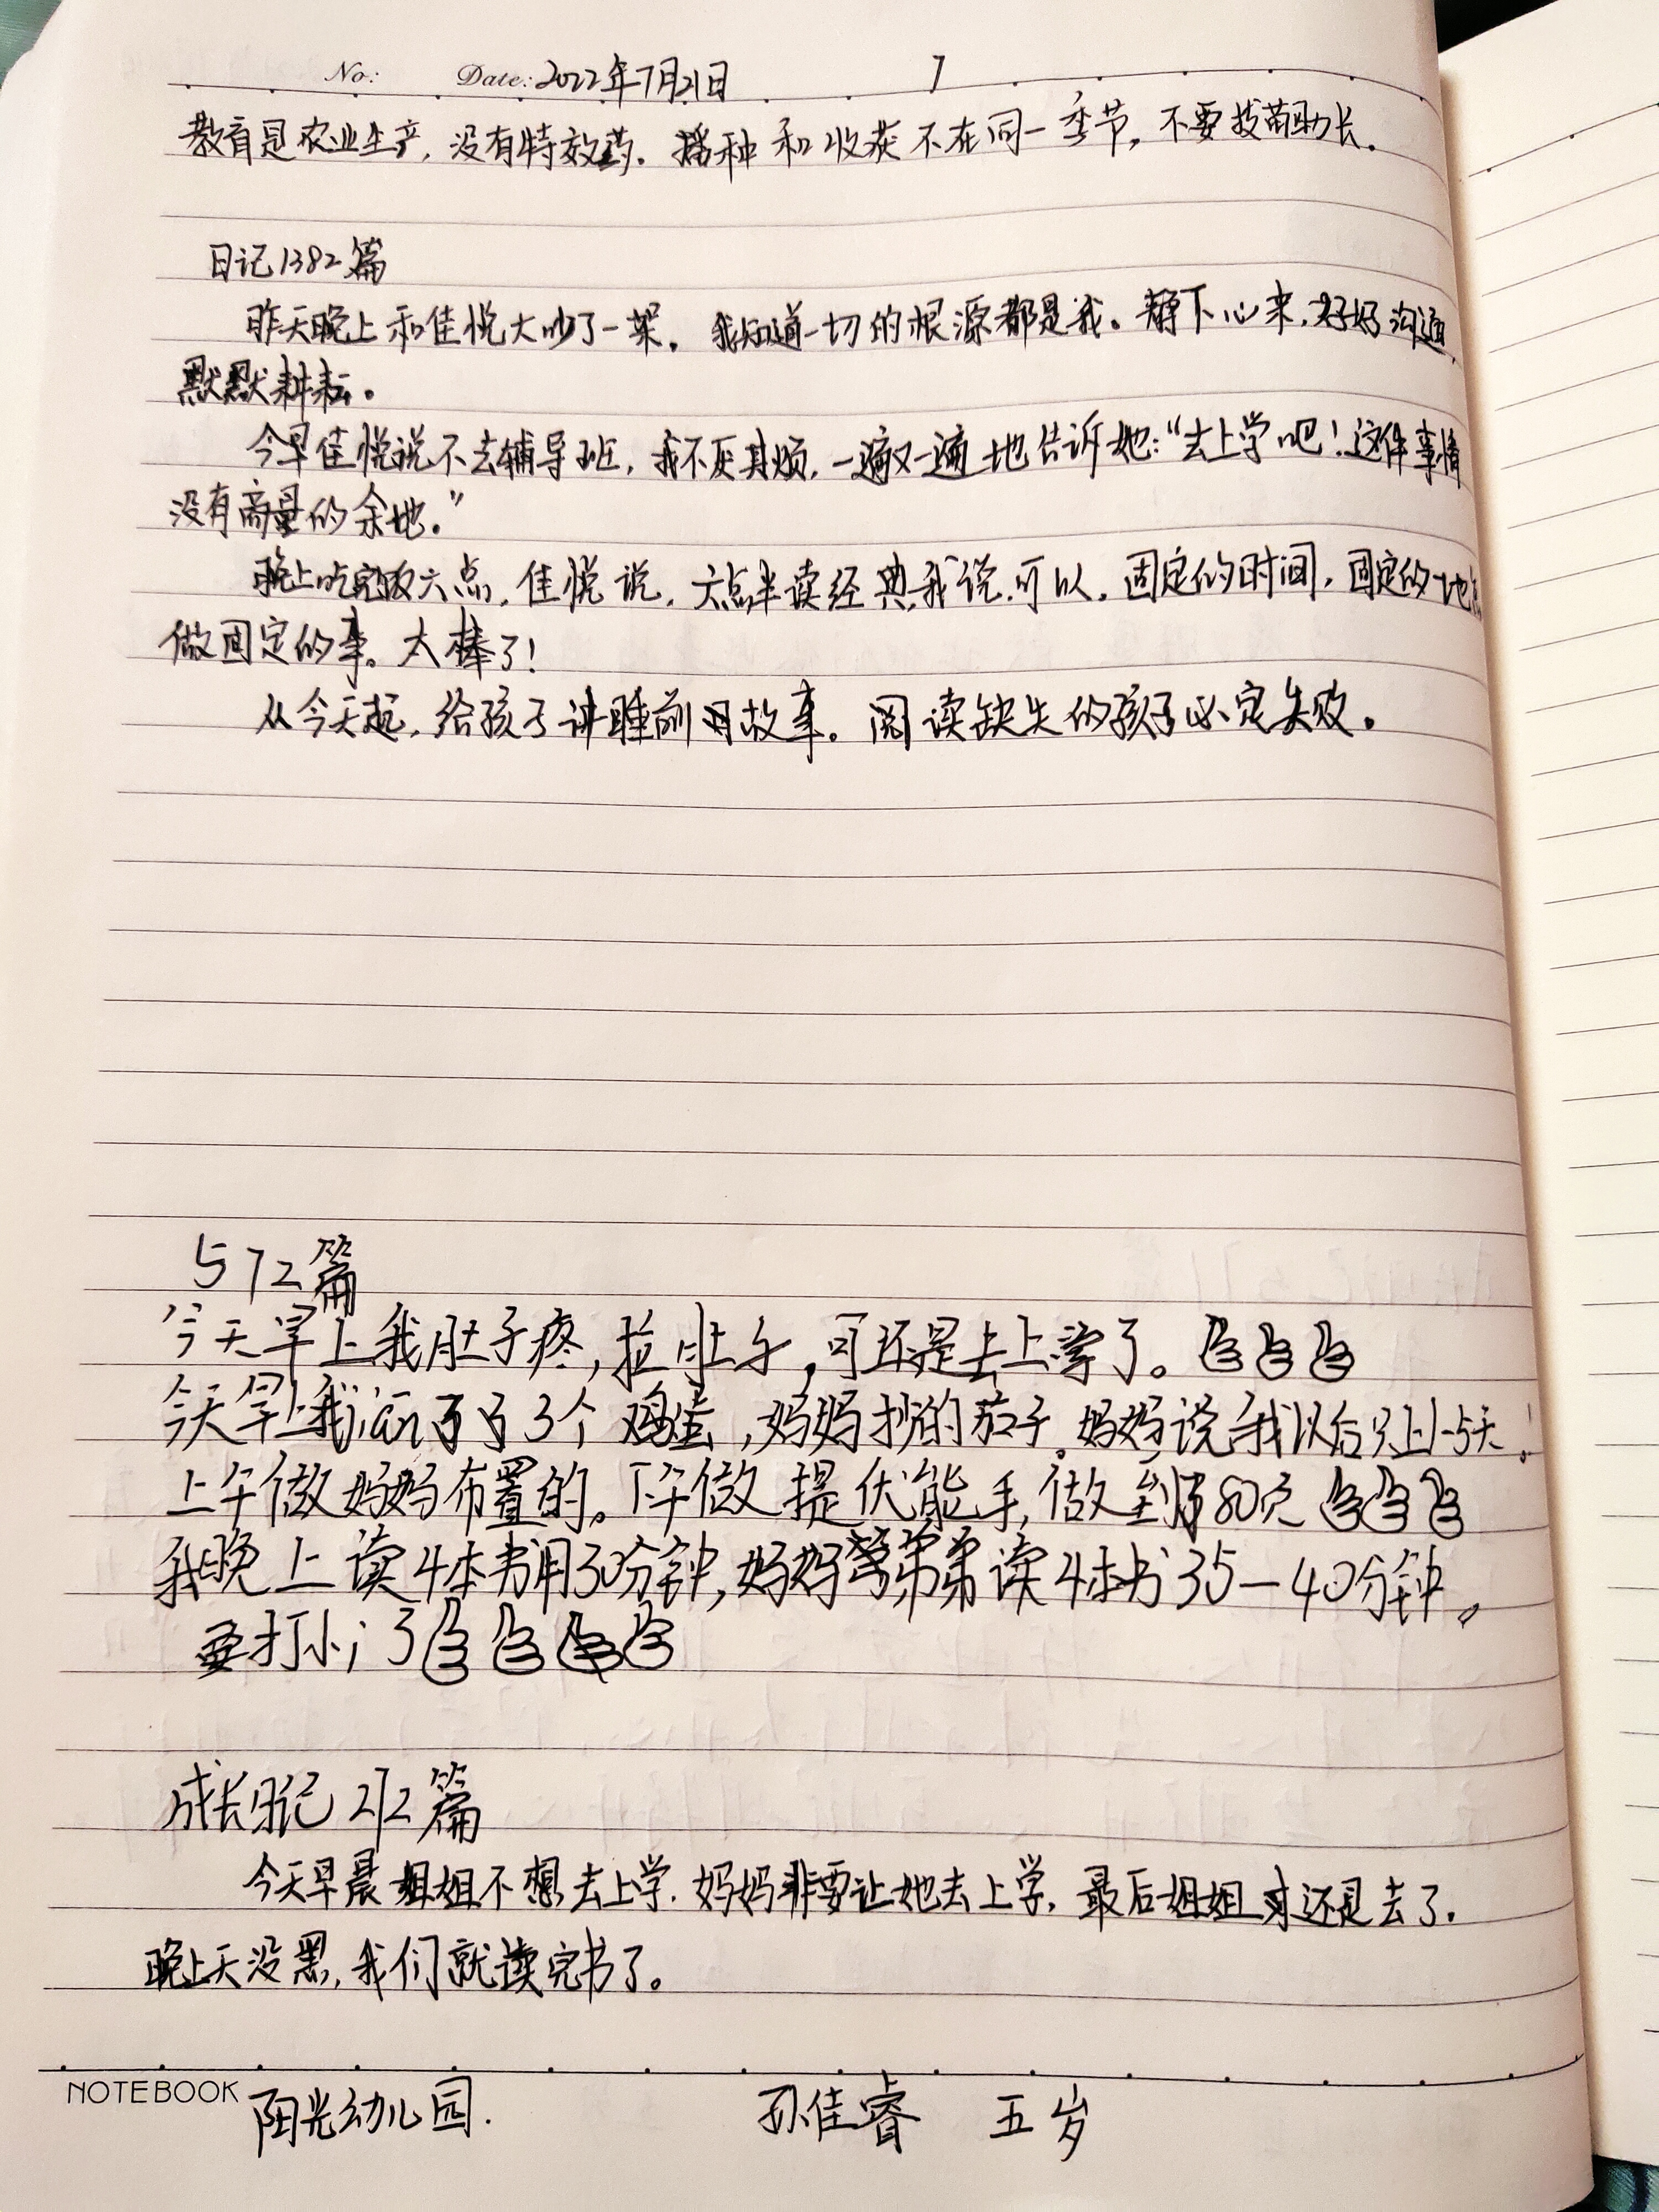 No: Date: 2022年7月21日 7
教育是农业生产，没有特效药。播种和收获不在同一季节，不要拔苗助长。
日记1382篇
昨天晚上和佳悦大吵了一架。我知道一切的根源都是我。静下心来，好好沟通，
默默耕耘。
今早佳悦说不去辅导班，我不厌其烦，一遍又一遍地告诉她：“去上学吧！这件事情
没有商量的余地。”
晚上吃完饭六点，佳悦说，六点半读经典，我说，可以，固定的时间，固定的地点
做固定的事。太棒了！
从今天起，给孩子讲睡前故事。阅读缺失的孩子必定失败。
572篇
今天早上我肚子疼，拉肚子，可还是去上学了。
今天早上我了3个鸡蛋，妈妈抄的茄子。妈妈说我以后只上1-5天！
上午做妈妈布置的。下午做提优能手，做到80页
我晚上读4本书用30分钟，妈妈带弟弟读4本书35-40分钟。
要打小了
成长日记212篇
今天早晨姐姐不想去上学，妈妈非要让她去上学，最后姐姐还是去了。
晚上天没黑，我们就读完书了。
NOTEBOOK 阳光幼儿园. 孙佳睿 五岁